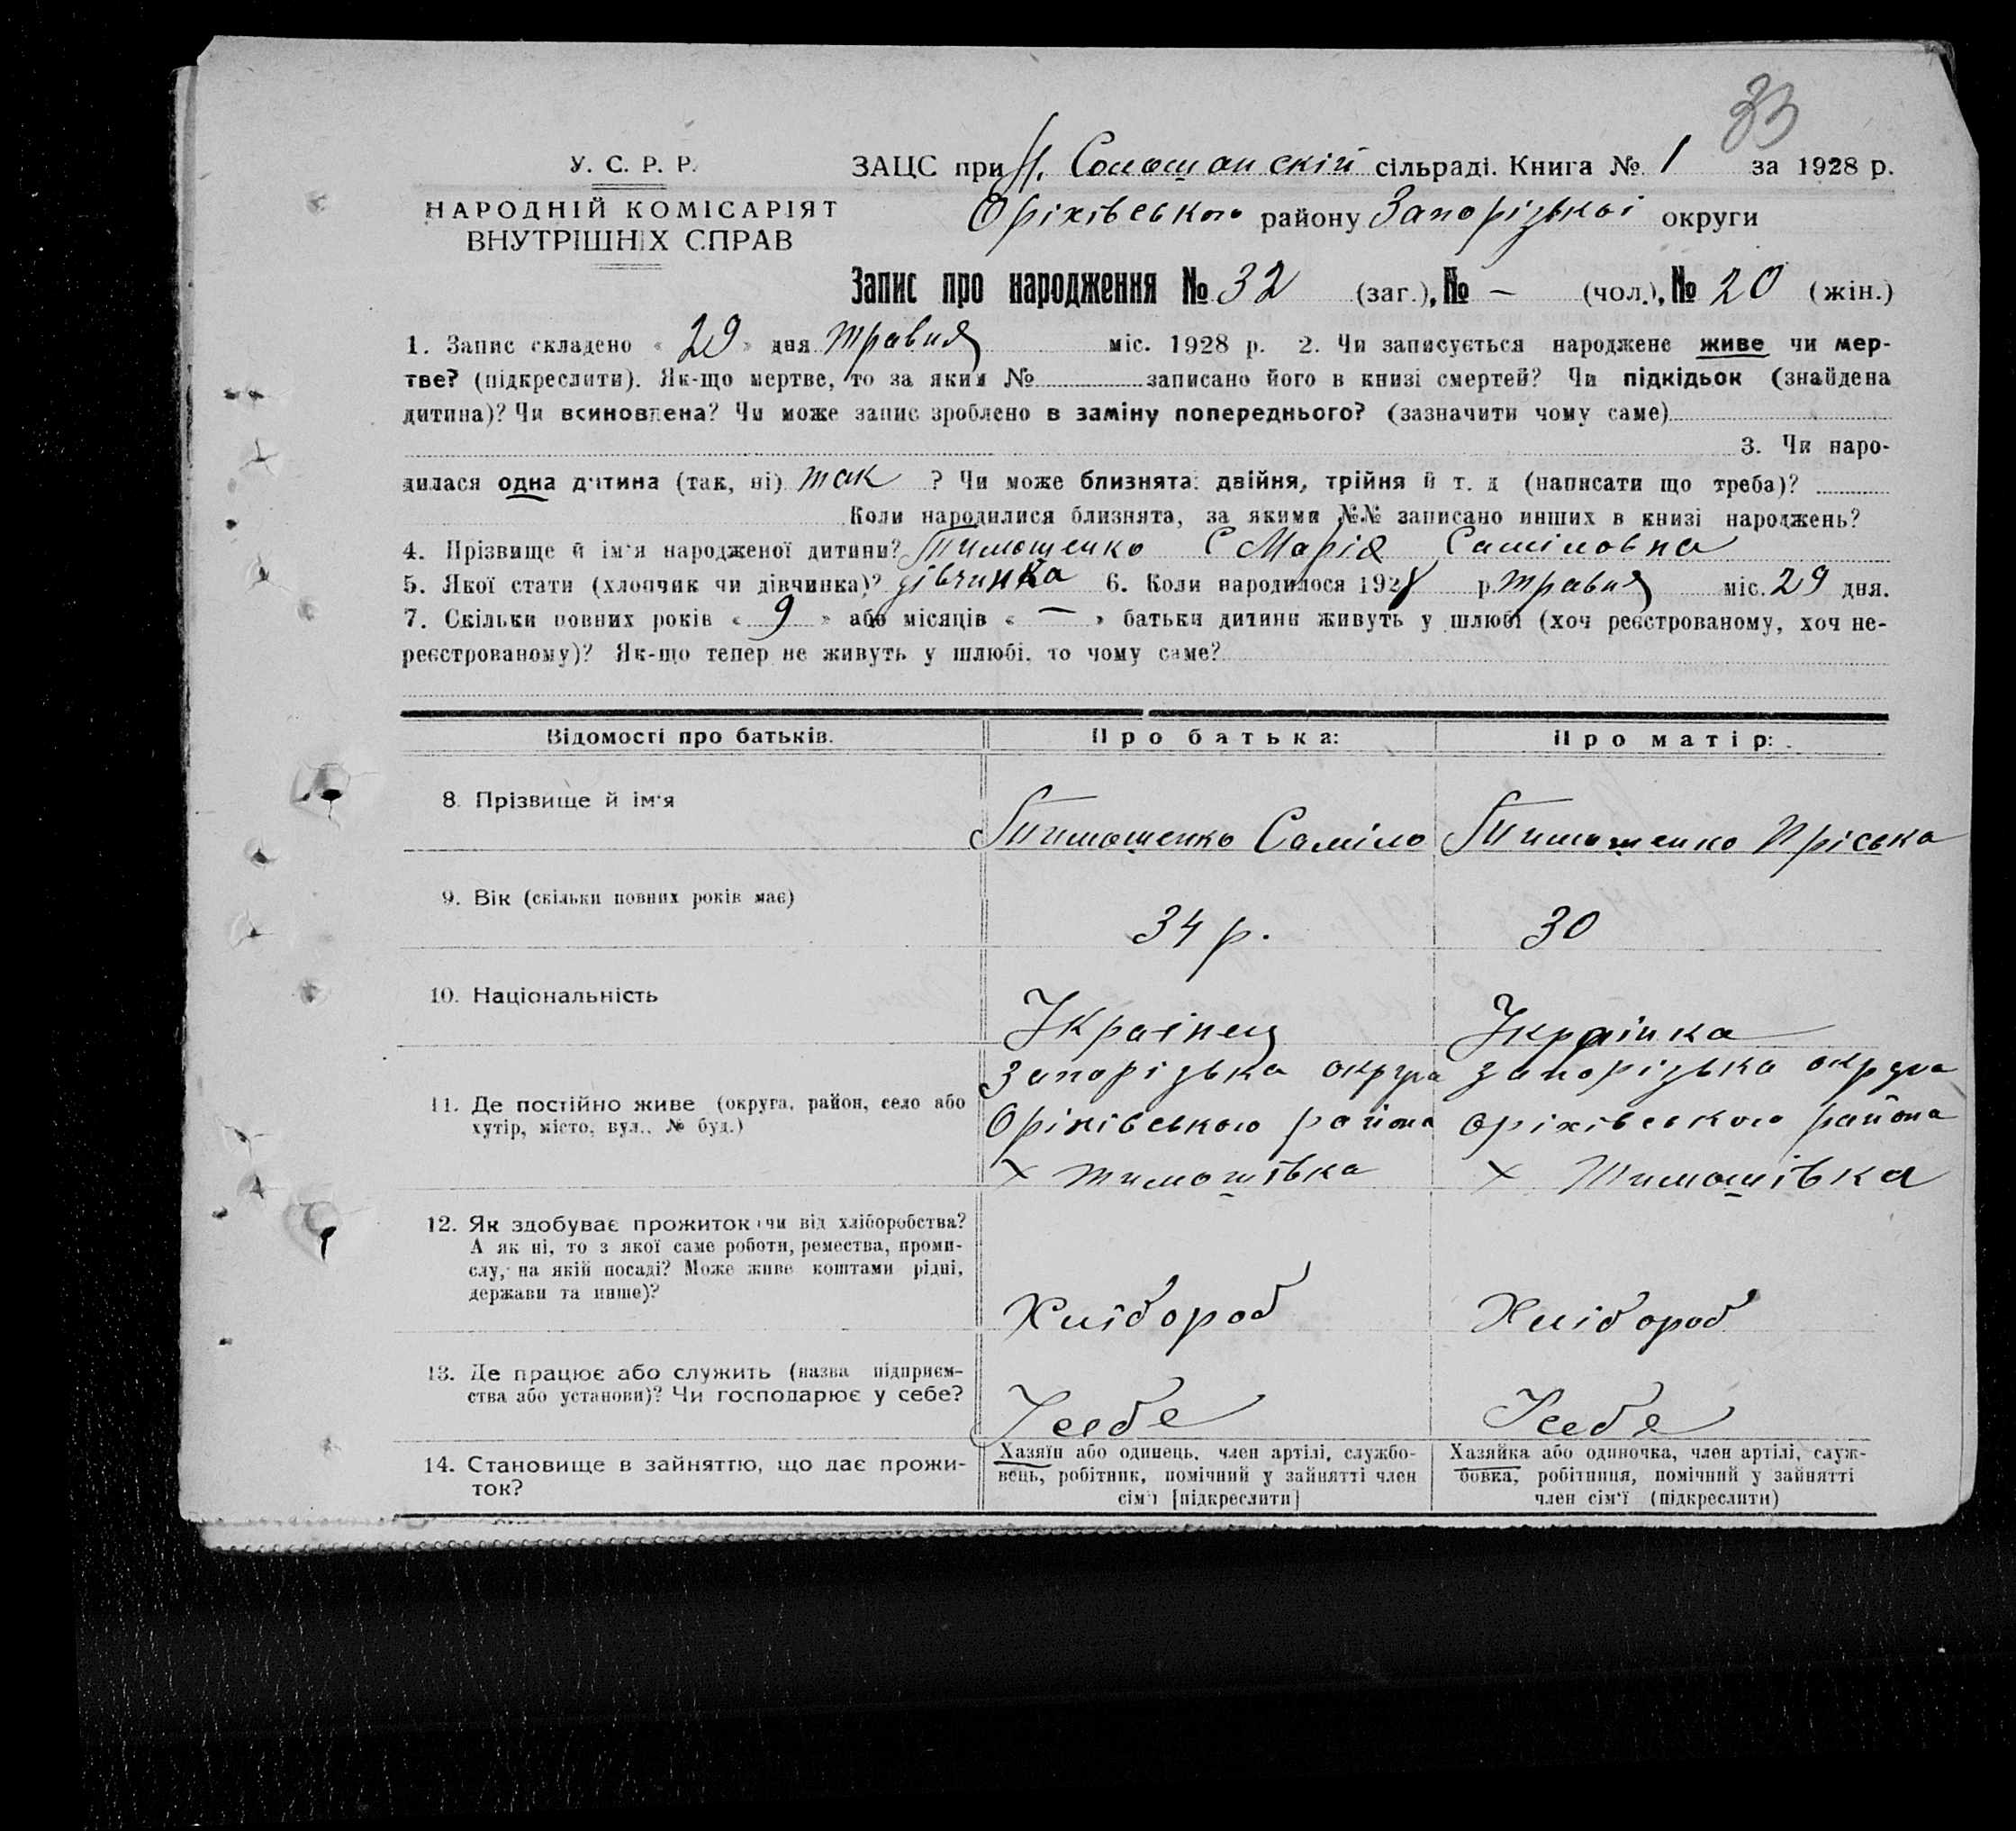 33
У. С. Р. Р.
НАРОДНІЙ КОМІСАРІЯТ
ВНУТРІШНІХ СПРАВ
ЗАЦС при Н. Солошанскій сільраді. Книга № 1 за 1928 р.
Оріхівського району Запорізької округи
Запис про народження № 32 (заг.), № – (чол.), № 20 (жін.)
1. Запис складено « 29 » дня травня міс. 1928 р. 2. Чи записується народжене живе чи мер-
тве? (підкреслити). Як-що мертве, то за яким № записано його в книзі смертей? Чи підкідьок (знайдена
дитина)? Чи всиновлена? Чи може запис зроблено в заміну попереднього? (зазначити чому саме)
3. Чи наро-
дилася одна дитина (так, ні) так ? Чи може близнята: двійня, трійня й т. д (написати що треба)?
Коли народилися близнята, за якими №№ записано инших в книзі народжень?
4. Прізвище й ім'я народженої дитини? Тимошенко Марія Саміловна
5. Якої стати (хлопчик чи дівчинка)? дівчинка 6. Коли народилося 1928 р. травня міс. 29 дня.
7. Скільки повних років « 9 » або місяців « — » батьки дитини живуть у шлюбі (хоч реєстрованому, хоч не-
реєстрованому)? Як-що тепер не живуть у шлюбі, то чому саме?
Відомості про батьків. Про батька: Про матір:
8. Прізвище й ім'я Тимошенко Саміло Тимошенко Пріська
9. Вік (скільки повних років має) 34 р. 30
10. Національність Українец Українка
11. Де постійно живе (округа, район, село або
хутір, місто, вул., № буд.)
Запорізька округа Запорізька округа
Оріхівського района Оріхівського района
х Тимошівка х Тимошівка
12. Як здобуває прожиток (чи від хліборобства?
А як ні, то з якої саме роботи, ремества, проми-
слу, на якій посаді? Може живе коштами рідні,
держави та инше)?
Хлібороб Хлібороб
13. Де працює або служить (назва підприєм-
ства або установи)? Чи господарює у себе?
У себе У себе
14. Становище в зайняттю, що дає прожи-
ток?
Хазяїн або одинець, член артілі, службо-
вець, робітник, помічний у зайнятті член
сім'ї [підкреслити]
Хазяйка або одиночка, член артілі, служ-
бовка, робітниця, помічний у зайнятті
член сім'ї (підкреслити)